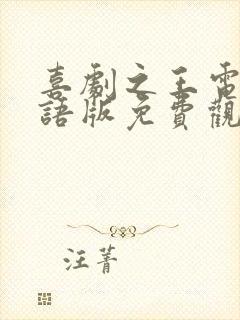 喜劇之王電
語版免費觀
汪菁